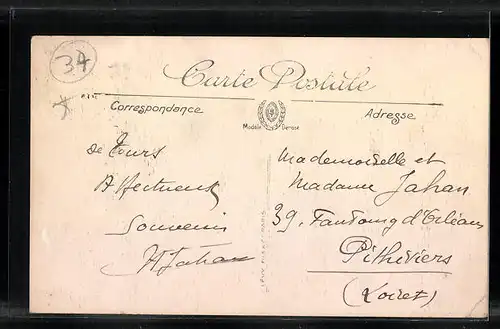 37
Carte Postale
Correspondance
Adresse
Modèle Déposé
de Tours
Affectueux
Souvenir
H Jahan
Mademoiselle et
Madame Jahan
39, Faubourg d'Orléans
Pithiviers
(Loiret)